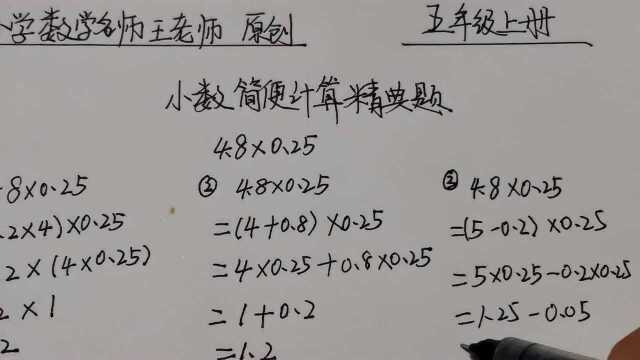 小学数学名师王老师 原创
五年级上册
小数简便计算精典题
4.8×0.25
8×0.25
.2×4)×0.25
2×(4×0.25)
2×1
2
② 4.8×0.25
=(4+0.8)×0.25
=4×0.25+0.8×0.25
=1+0.2
=1.2
③ 4.8×0.25
=(5-0.2)×0.25
=5×0.25-0.2×0.25
=1.25-0.05